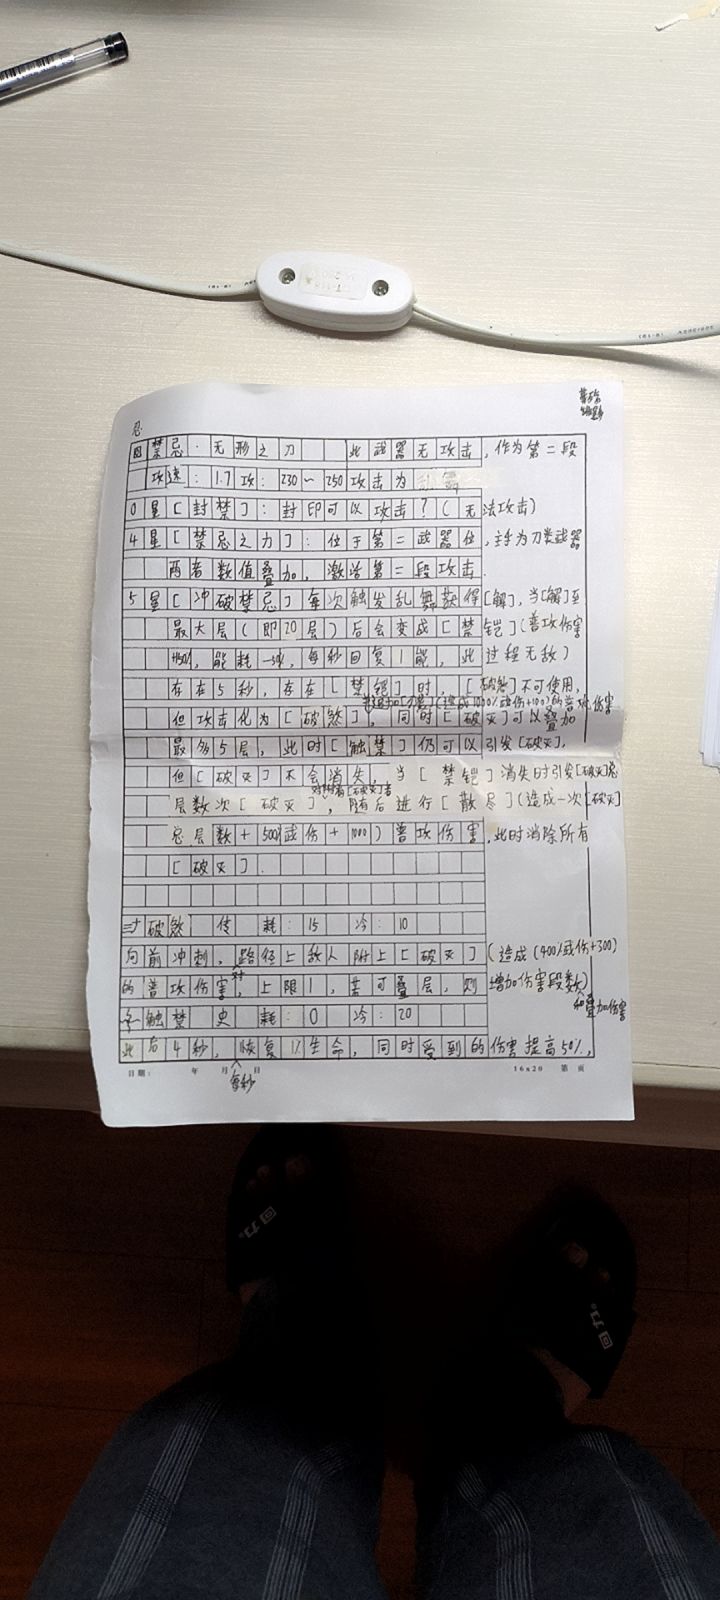 忍
禁忌·无形之刀 此武器无攻击,作为第二段
攻速:1.7 攻:230~250 攻击为
0星[封禁]:封印可以攻击?(无法攻击)
4星[禁忌之力]:位于第二武器位,主手为刀类武器
两者数值叠加,激活第二段攻击.
5星[冲破禁忌]每次触发乱舞获得[解],当[解]至
最大层(即20层)后会变成[禁铠](普攻伤害
+150%,能耗-50%,每秒回复1能,此过程无敌)
存在5秒,存在[禁铠]时,[破煞]不可使用,
(造成1000%武伤+100)的普攻伤害
但攻击化为[破煞],同时[破灭]可以叠加
最多5层,此时[触禁]仍可以引发[破灭],
但[破灭]不会消失,当[禁铠]消失时引发[破灭]总
对所有[破灭]者
层数次[破灭],随后进行[散尽](造成一次[破灭]
总层数+500%武伤+1000)普攻伤害,此时消除所有
[破灭].
破煞 传 耗:15 冷:10
向前冲刺,路径上敌人附上[破灭](造成(400%武伤+300)
的普攻伤害,上限1,若可叠层,则增加伤害段数)
对
和叠加伤害
触禁 史 耗:0 冷:20
此后4秒,恢复1%生命,同时受到的伤害提高50%,
每秒
日期: 年 月 日 16x20 第 页
回力。
回力。